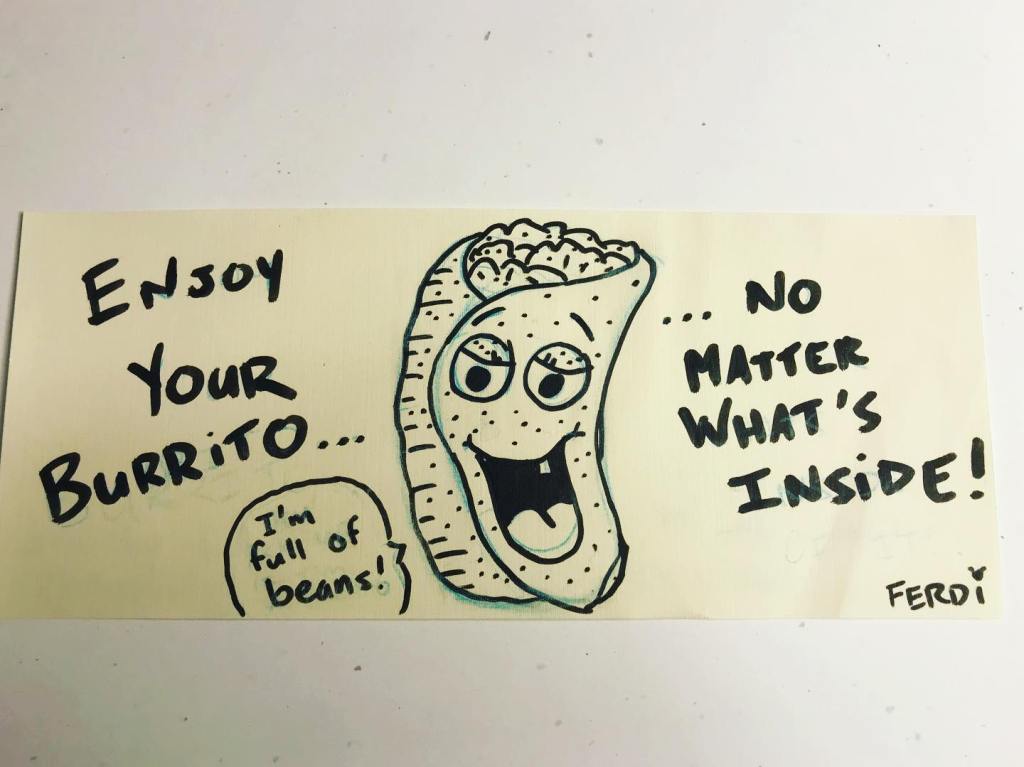 ENJOY
YOUR
BURRiTO...
I'm
full of
beans!
... NO
MATTER
WHAT'S
INSiDE!
FERDi